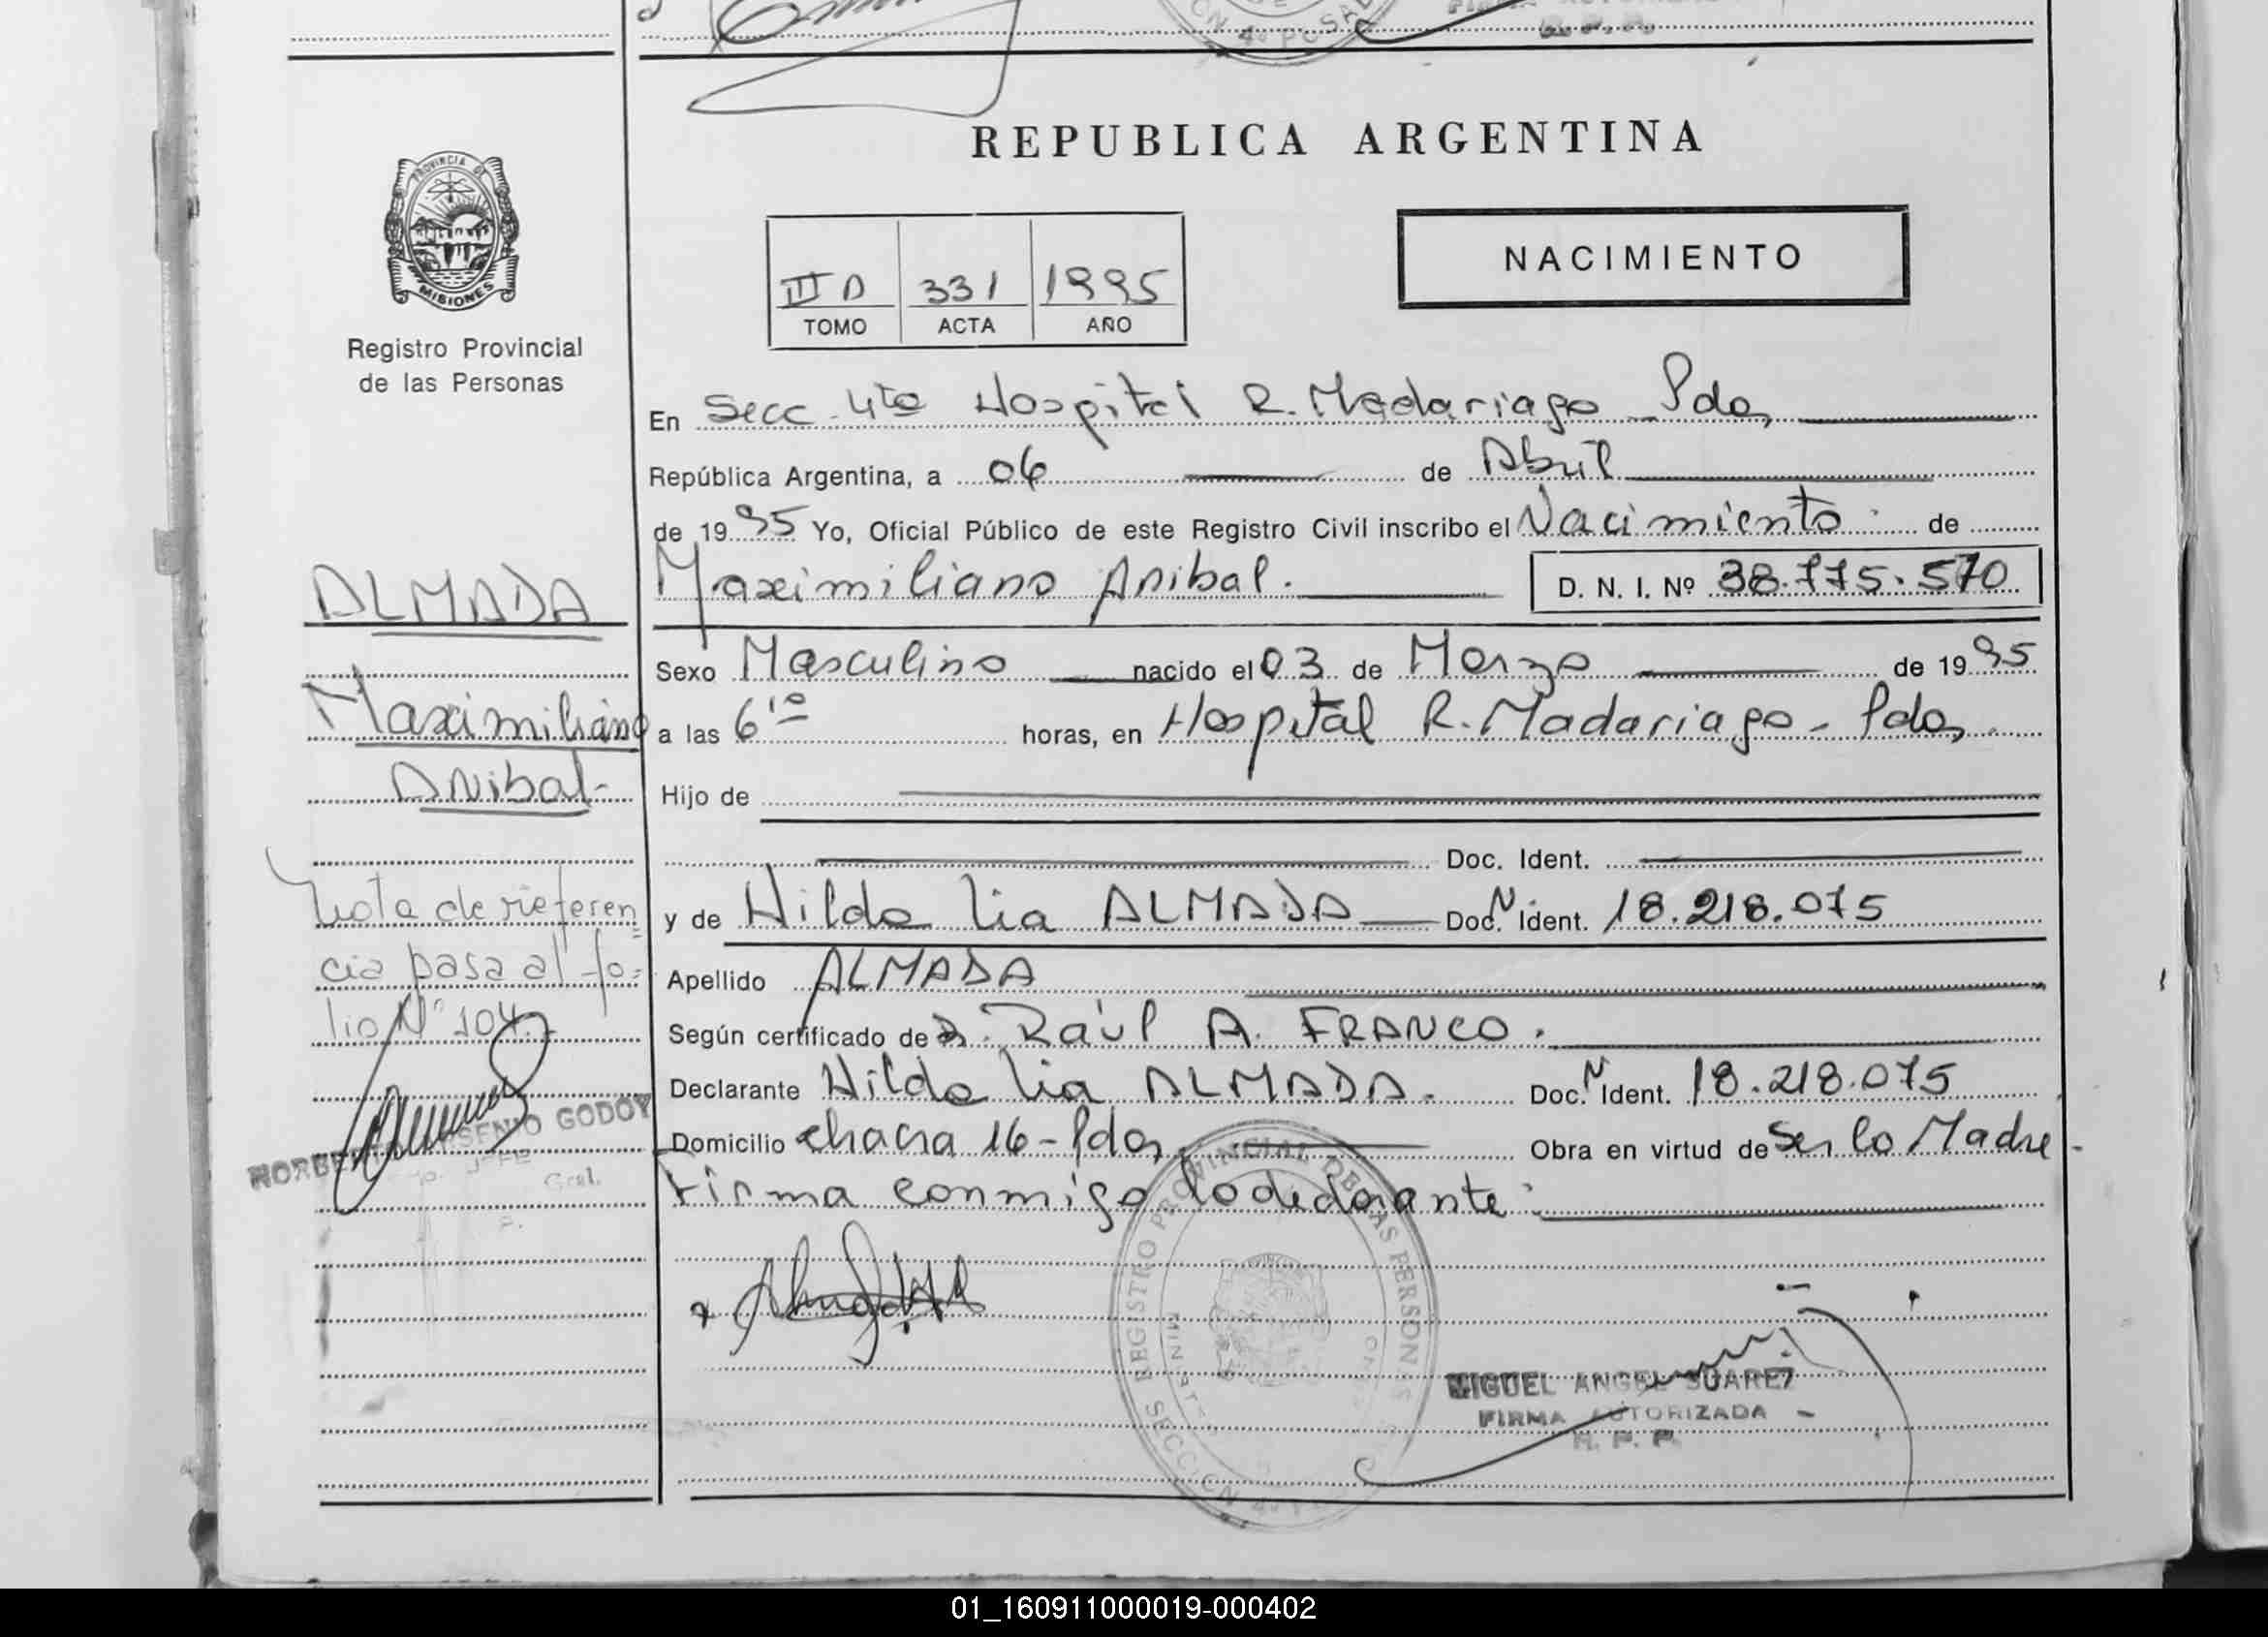 REPUBLICA ARGENTINA
PROVINCIA DE
MISIONES
Registro Provincial
de las Personas
NACIMIENTO
III D 331 1995
TOMO ACTA AÑO
En Secc. 4ta Hospital R. Madariaga - Pdas,
República Argentina, a 06 de Abril
de 1995 Yo, Oficial Público de este Registro Civil inscribo el Nacimiento de
Maximiliano Anibal. D. N. I. Nº 38.775.570
Sexo Masculino nacido el 03 de Marzo de 1995
a las 6 10 horas, en Hospital R. Madariaga - Pdas,
Hijo de
Doc. Ident.
y de Hilda Lia ALMADA Doc. N Ident. 18.218.075
Apellido ALMADA
Según certificado de Dr. Raúl A. FRANCO.
Declarante Hilda Lia ALMADA. Doc. N Ident. 18.218.075
Domicilio chacra 16 - Pdas, Obra en virtud de Ser la Madre -
Firma conmigo la declarante:
ALMADA
Maximiliano
Anibal -
Nota de referen
cia pasa al fo-
lio Nº 104.
GODOY
JEFE
Gral.
REGISTRO PROVINCIAL DE LAS PERSONAS
SECCION 4ª
MIGUEL ANGEL SUAREZ
FIRMA AUTORIZADA
R. P. P.
01_160911000019-000402